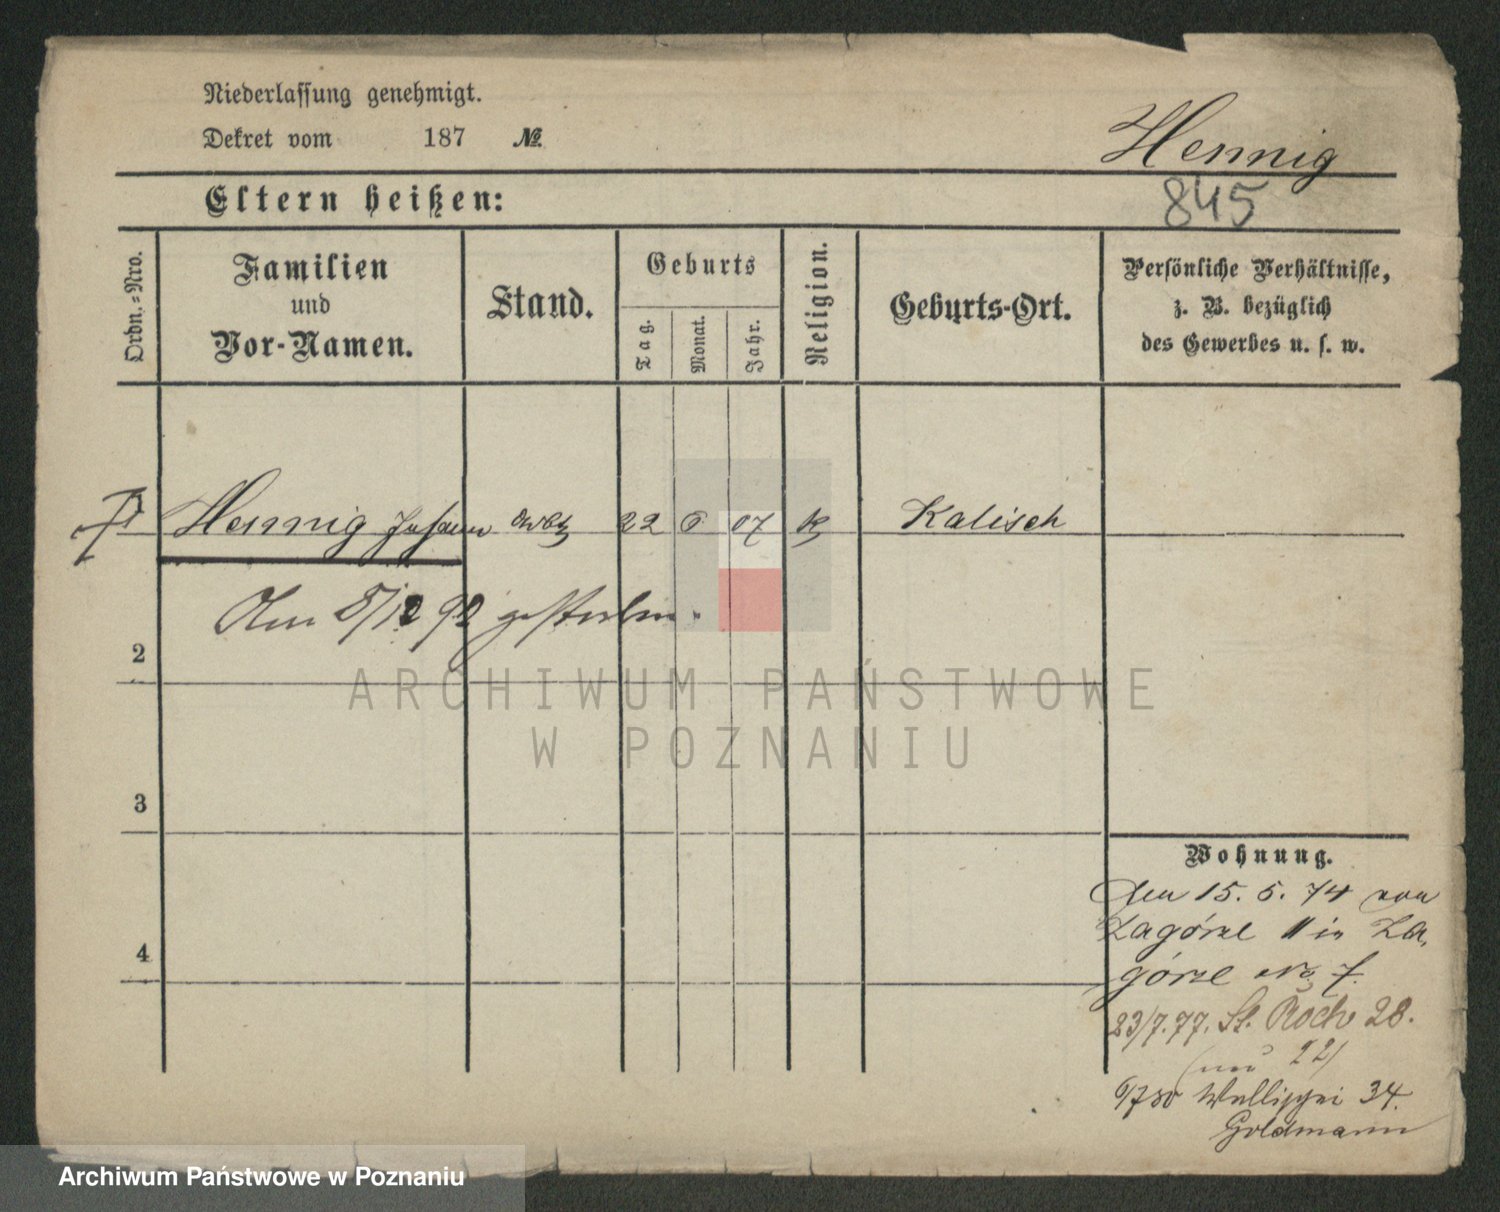 Niederlassung genehmigt.
Dekret vom 187 №
Hennig
845
Eltern heißen:
Ordn.-Nro.
Familien
und
Vor-Namen.
Stand.
Geburts
Tag.
Monat.
Jahr.
Religion.
Geburts-Ort.
Persönliche Verhältnisse,
z. B. bezüglich
des Gewerbes u. s. w.
Hennig Johann 22 6 07 k Kalisch
Am 8/12 92 gestorben.
2
3
4
Wohnung.
Am 15. 5. 74 von
Zagórze 11 in Za,
górze No 7.
23/7.77. St. Roch 28.
(nun 22)
6/7 80 Wallischei 34.
Goldmann
ARCHIWUM PAŃSTWOWE
W POZNANIU
Archiwum Państwowe w Poznaniu